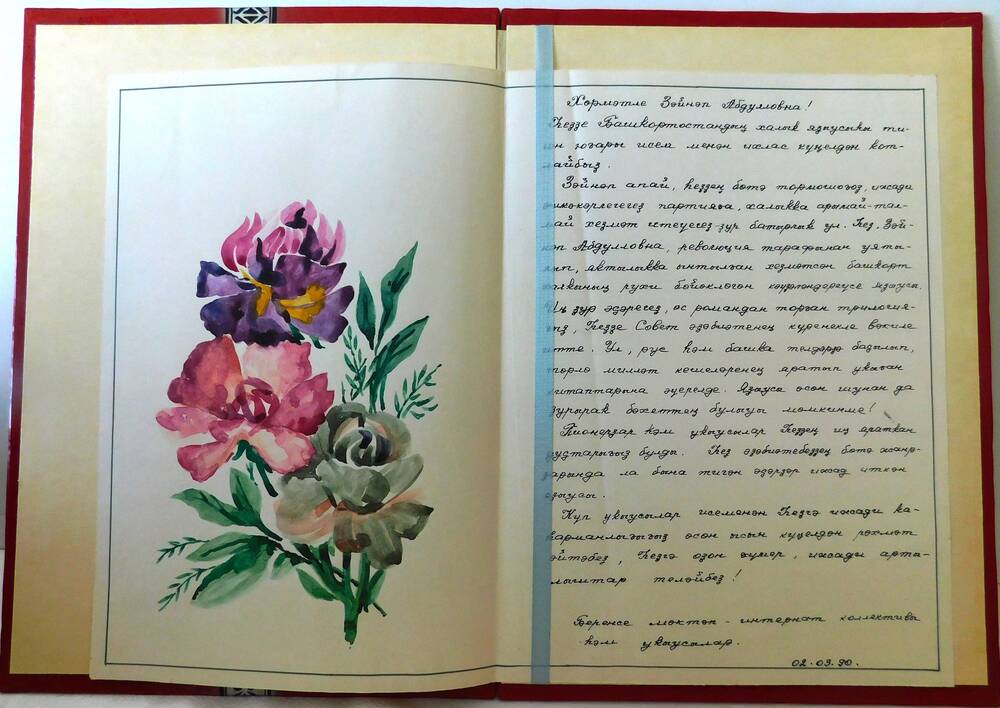 Хөрмәтле Зәйнәп Абдулловна!
Һеззе Башкортостандың халык язусыһы ти-
н юғары исем менән ихлас күңелдән кот-
айбыз.
Зәйнәп апай, һеззең бөтә тормошоғоз, ижади
партияға, халыкка арымай-тал-
май хезмәт итеүегез-зур батырлык ул. Һез, Зәй-
нәп Абдулловна, революция тарафынан уяты-
лып, яктылыкка ынтылған хезмәтсән башкорт
халкының рухи бөйөклөгөн кәүзәләндереүсе языусы.
Иң зур әсәрегез, өс романдан торған трилогия-
ғыз, Һеззе Совет әзәбиәтенең күренекле вәкиле
итте. Ул, рус һәм башка телдәрзә баçылып,
төрлө милләт кешеләренең яратып укыған
китаптарына әүерелде. Языусы өсөн шунан да
зурырак бәхеттең булыуы мөмкинме!
Пионерзар һәм укыусылар Һеззең иң яраткан
дуçтарығыз булды. Һез әзәбиәтебеззең бөтә жанр-
арында ла бына тигән әçәрзәр ижад иткән
языусы.
Күп укыусылар исеменән Һезгә ижади ка-
һарманлығығыз өсөн ысын күңелдән рәхмәт
әйтәбез, Һезгә озон ғүмер, ижади арты-
лыштар теләйбез!
Беренсе мәктәп-интернат коллективы
һәм укыусылар.
02.03.90.